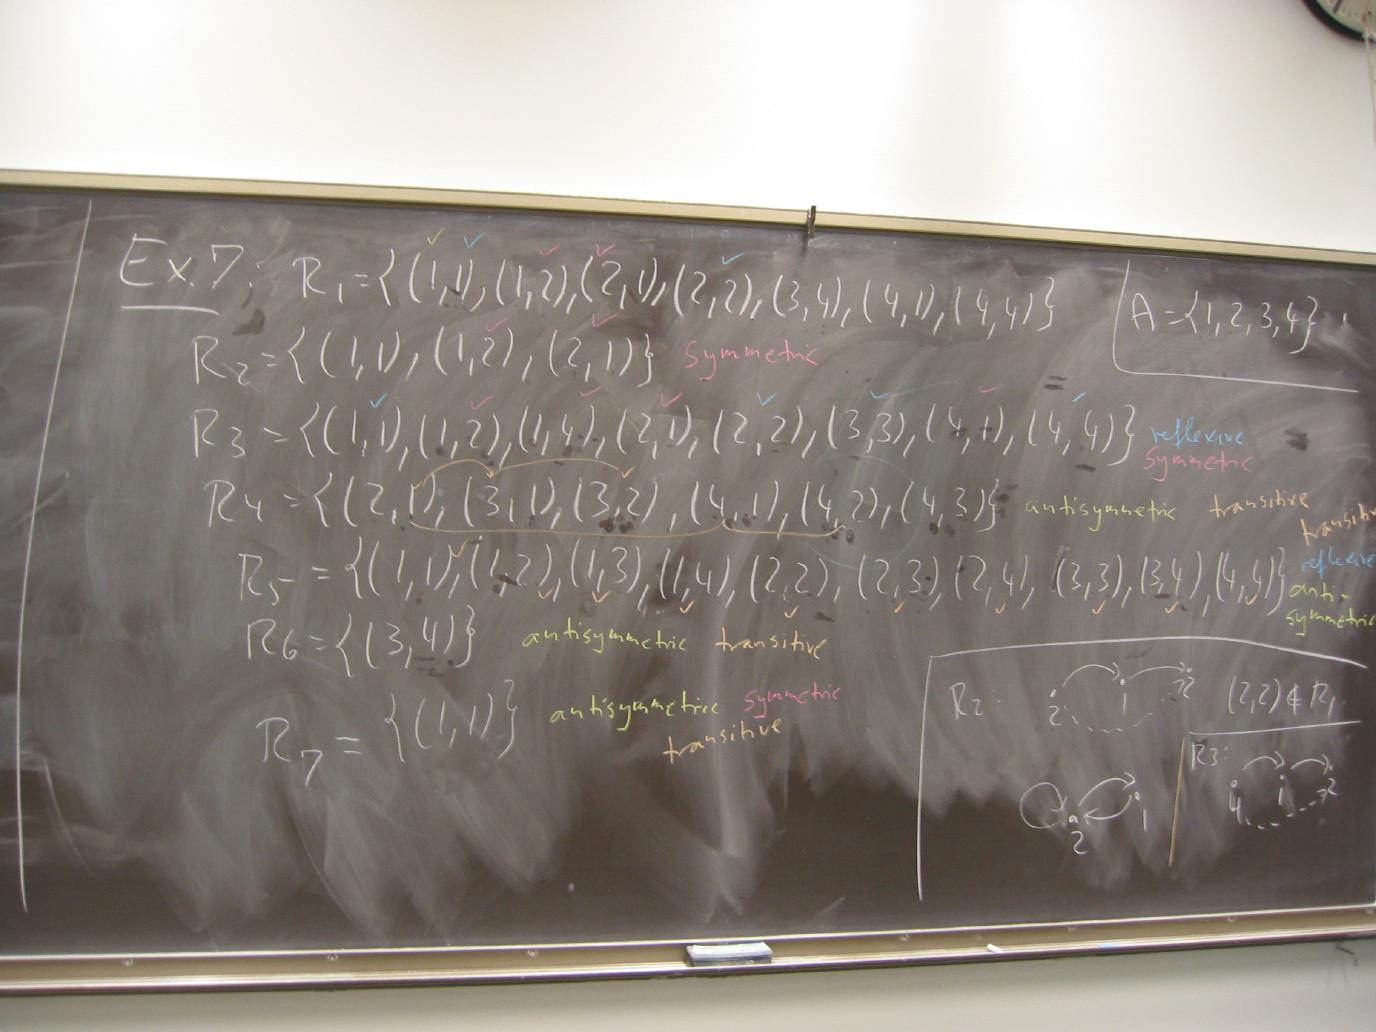 Ex.7: R1={(1,1),(1,2),(2,1),(2,2),(3,4),(4,1),(4,4)}
A={1,2,3,4}
R2={(1,1),(1,2),(2,1)} symmetric
R3={(1,1),(1,2),(1,4),(2,1),(2,2),(3,3),(4,1),(4,4)} reflexive
symmetric
R4={(2,1),(3,1),(3,2),(4,1),(4,2),(4,3)} antisymmetric transitive
transitiv
R5={(1,1),(1,2),(1,3),(1,4),(2,2),(2,3),(2,4),(3,3),(3,4),(4,4)} reflexive
anti-
symmetric
R6={(3,4)} antisymmetric transitive
R7={(1,1)} antisymmetric symmetric
transitive
R2: 2 1 2 (2,2)∉R1
R3:
4 1 2
2 1